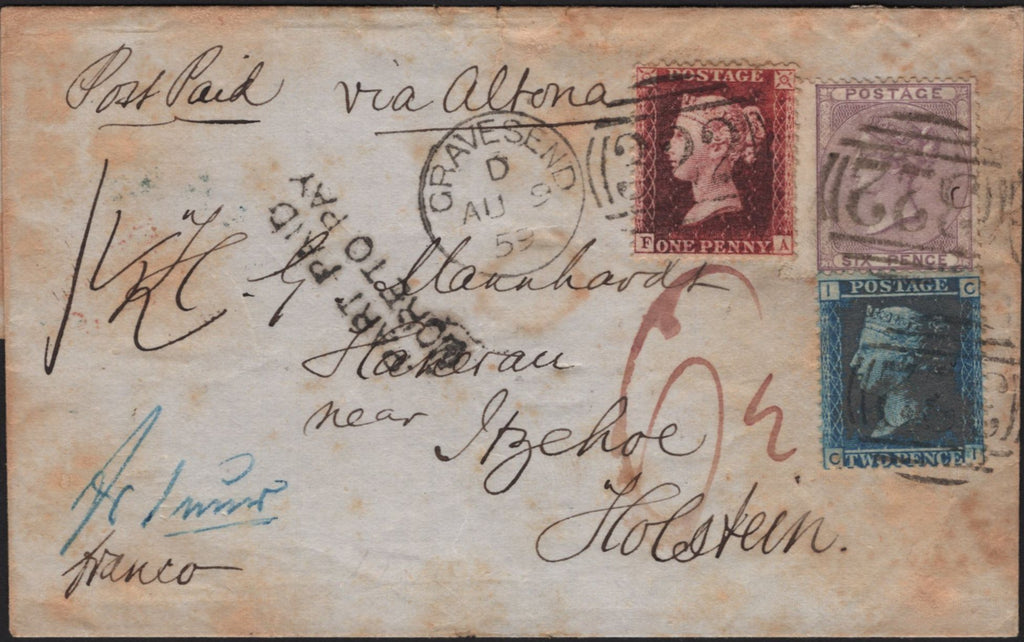 Post Paid via Altona
GRAVESEND
D
AU 9
59
PART PAID
TO PAY
POSTAGE
F ONE PENNY A
POSTAGE
SIX PENCE
I POSTAGE C
C TWO PENCE I
G Mannhardt
Hanerau
near Itzehoe
Holstein.
franco